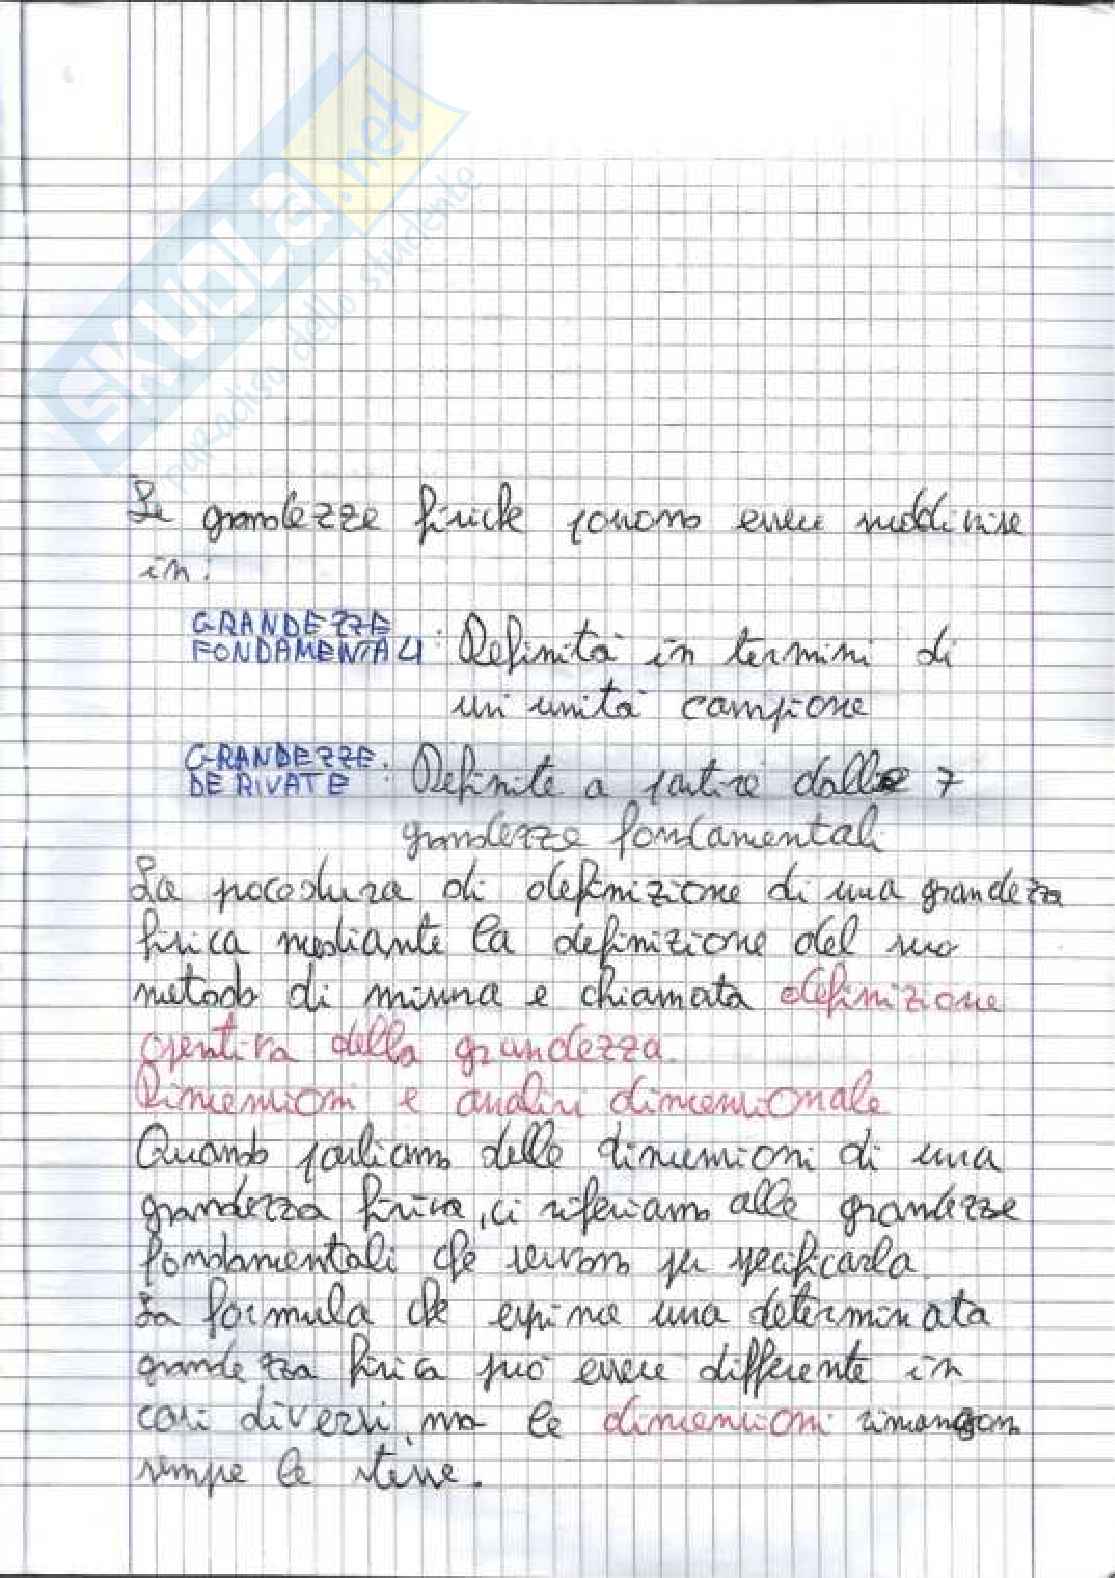 SKUOLA.net
paradiso dello studente
Le grandezze fisiche possono essere suddivise
in:
GRANDEZZE
FONDAMENTALI : Definita in termini di
un'unità campione
GRANDEZZE
DERIVATE : Definite a partire dalle 7
grandezze fondamentali
La pocedura di definizione di una grandezza
fisica mediante la definizione del suo
metodo di misura e chiamata definizione
opertiva della grandezza.
Dimensioni e analisi dimensionale
Quando parliamo delle dimensioni di una
grandezza fisica, ci riferiamo alle grandezze
fondamentali che servono per specificarla.
La formula che esprime una determinata
grandezza fisica può essere differente in
casi diversi, ma le dimensioni rimangono
sempre le stesse.